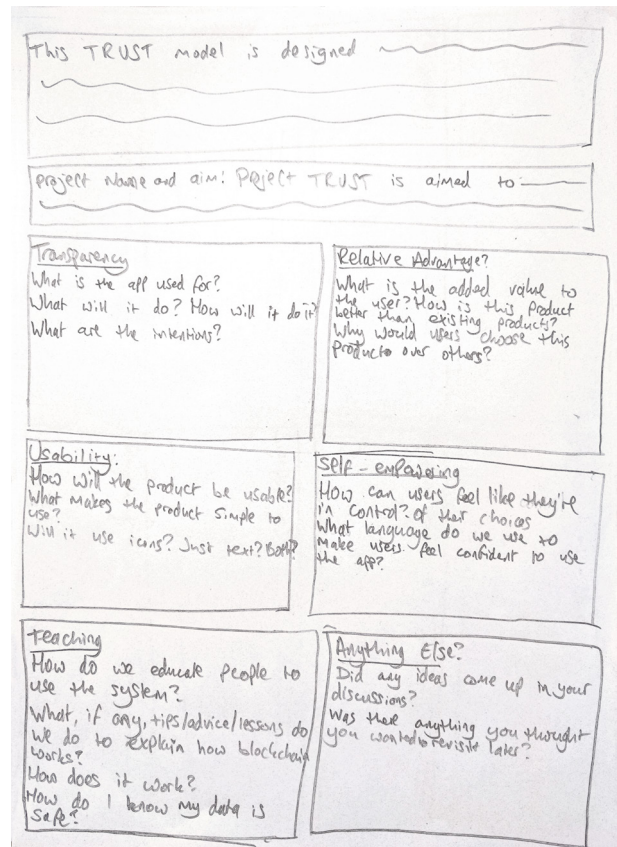 This TRUST model is designed
Project Name and aim: Project TRUST is aimed to
Transparency
What is the app used for?
What will it do? How will it do it?
What are the intentions?
Relative Advantage?
What is the added value to
the user? How is this product
better than existing products?
Why would users choose this
products over others?
Usability:
How will the product be usable?
What makes the product simple to
use?
Will it use icons? Just text? Both?
Self-empowering
How can users feel like they're
in control? of their choices
What language do we use to
make users feel confident to use
the app?
Teaching
How do we educate people to
use the system?
What, if any, tips/advice/lessons do
we do to explain how blockchain
works?
How does it work?
How do I know my data is
safe?
Anything Else?
Did any ideas come up in your
discussions?
Was there anything you thought
you wanted to revisit later?